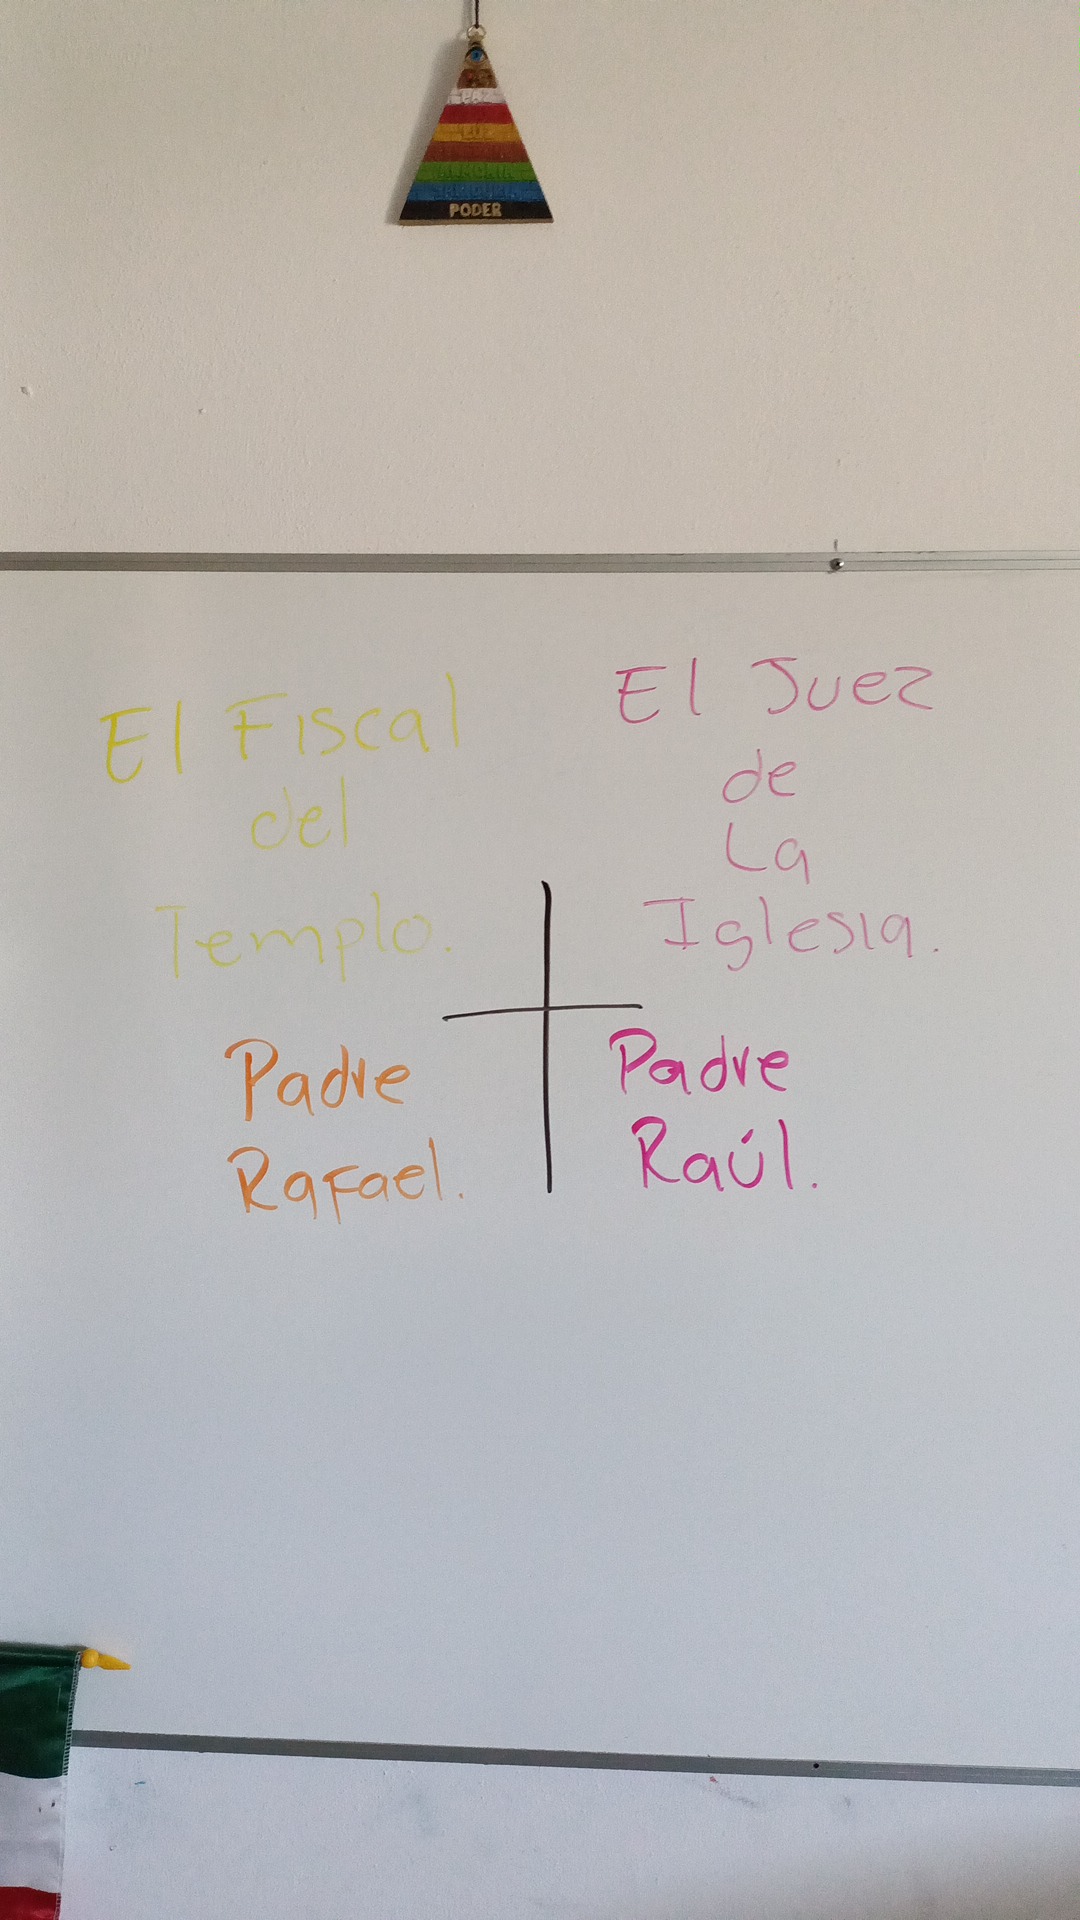 PAZ
PODER
El Fiscal
del
Templo.
Padre
Rafael.
El Juez
de
La
Iglesia.
Padre
Raúl.